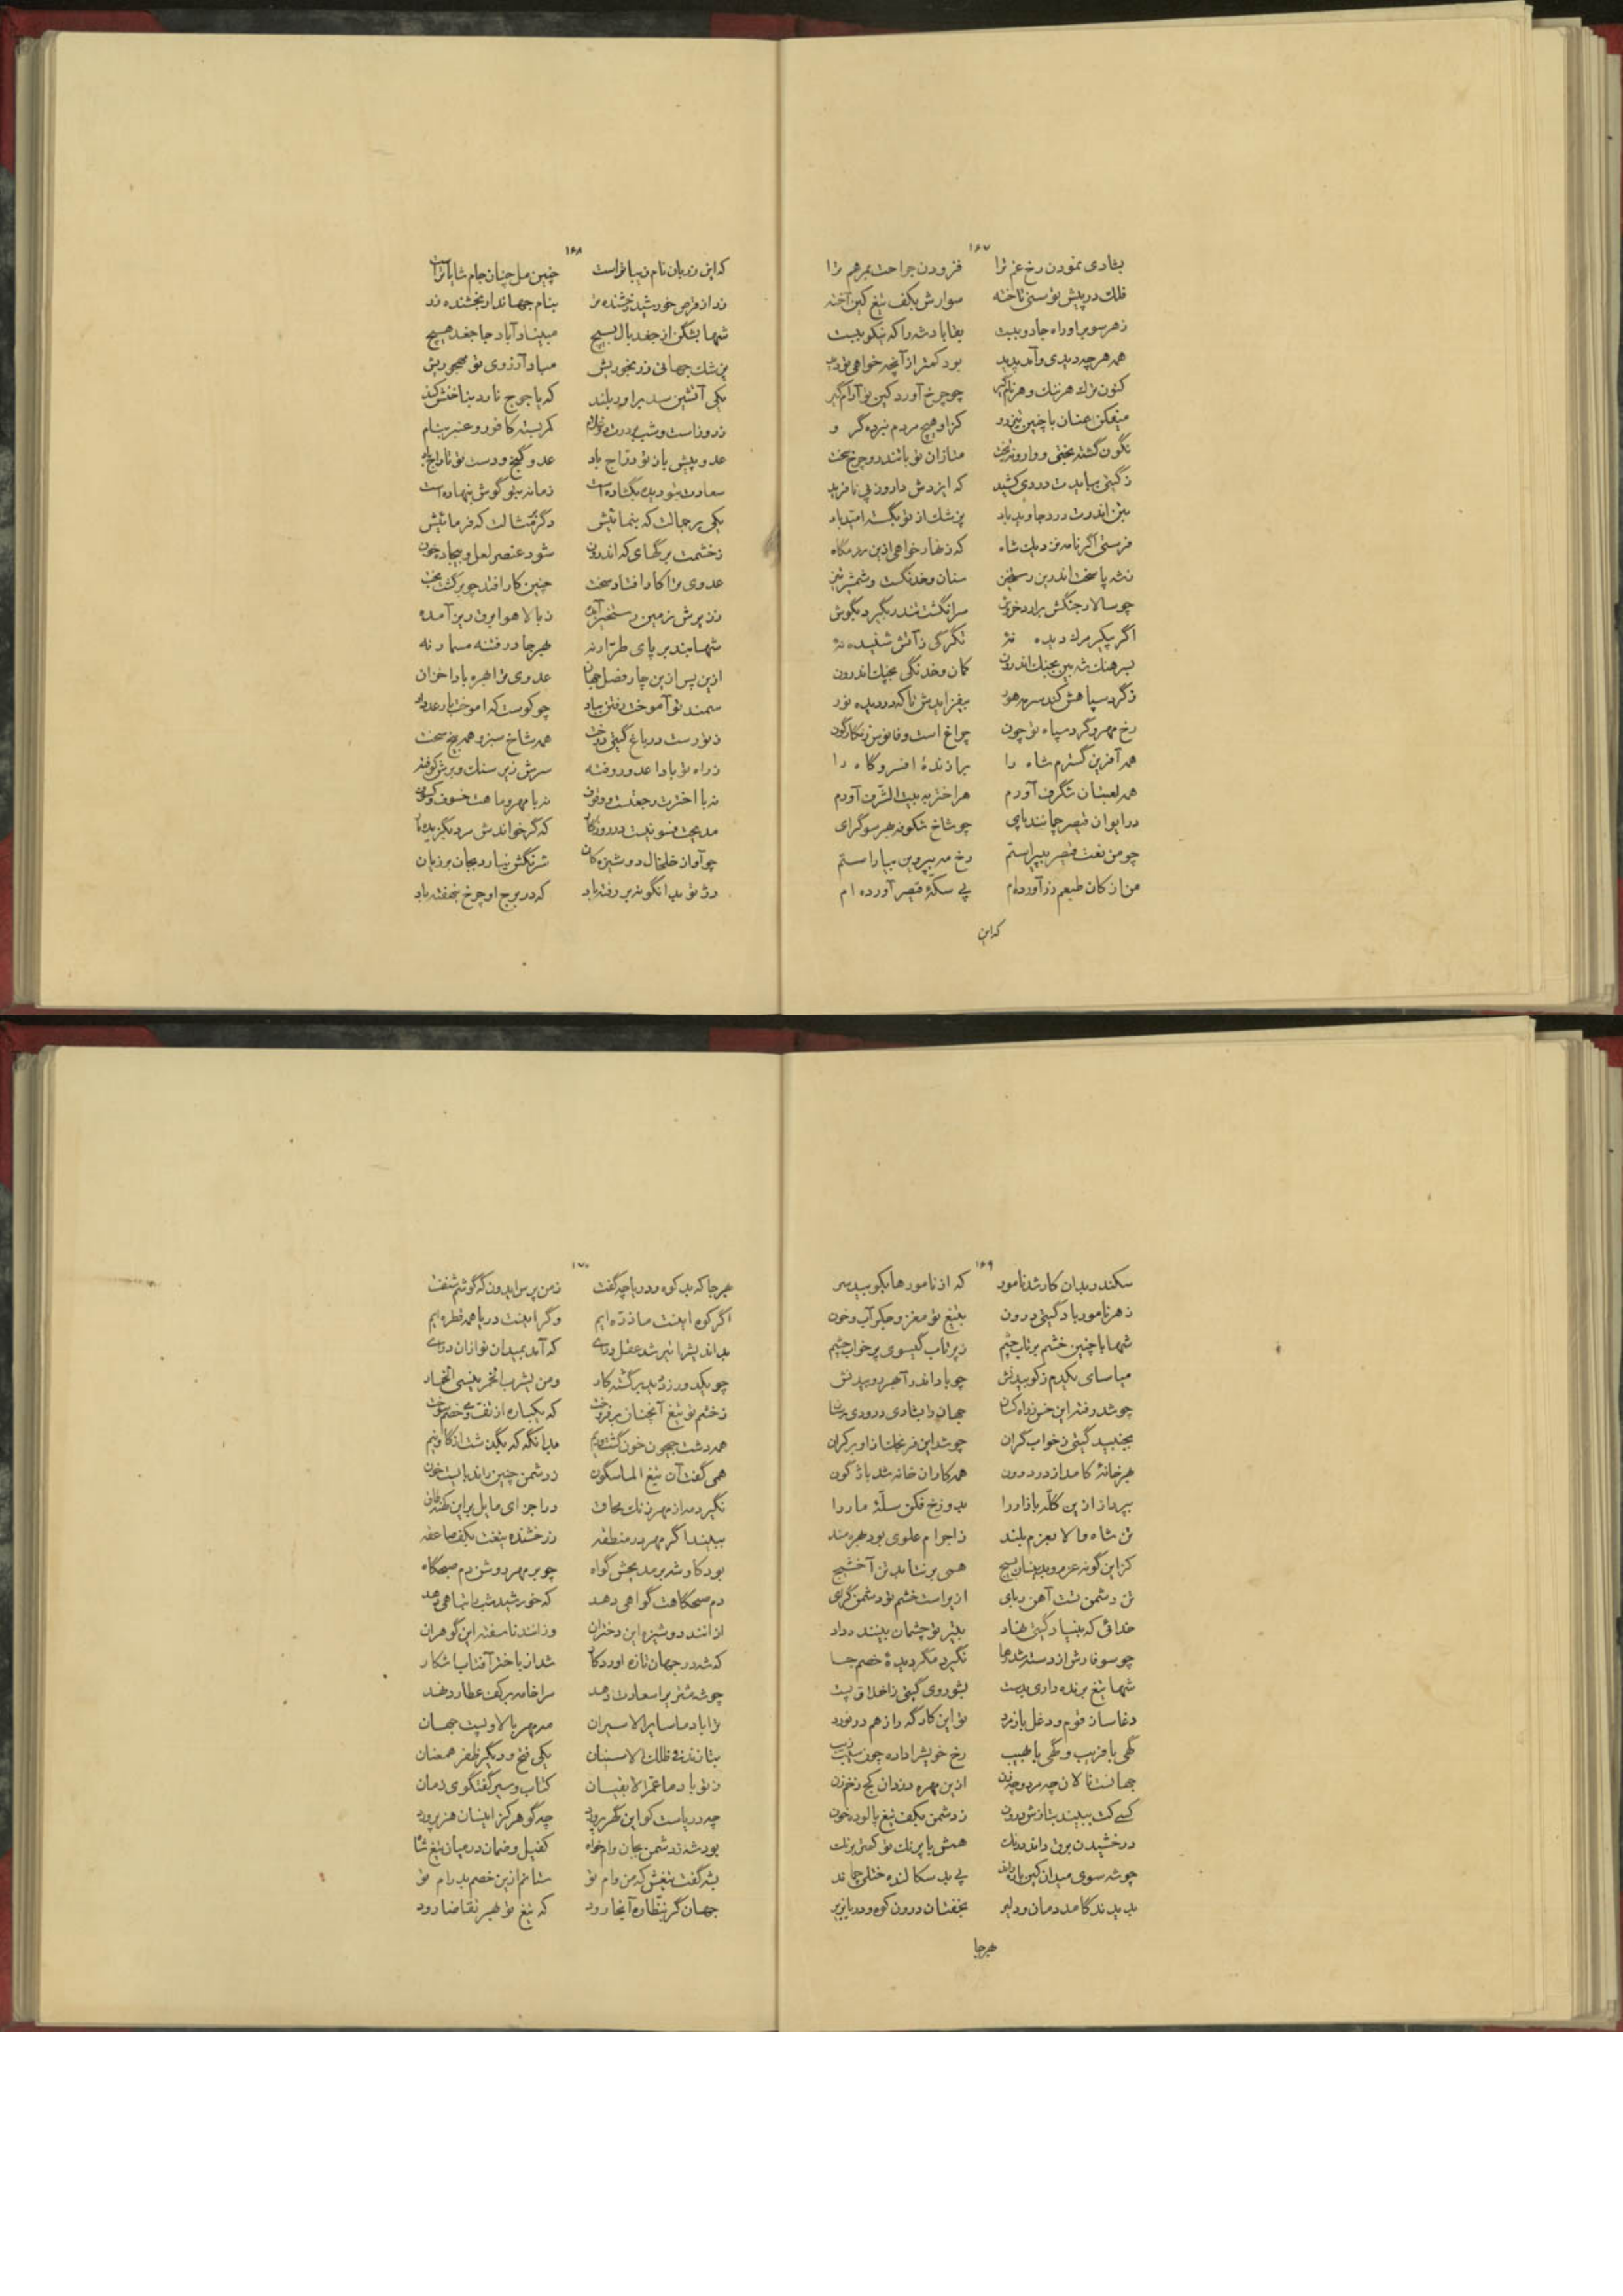 ۱۶۷
بشادی نمودن رخ غم ترا فزودن جراحت بمرهم ترا
فلک در پیش تو سنی تاخته سوارش بکف تیغ کین آخته
ز هر سو براو راه جادو ببست بقا باد شه را که نیکو ببست
همه هر چه دیدی و آمد پدید بود کمتر از آنچه خواهی تو دید
کنون ترک هر ننک و هر نام گیر چو چرخ آورد کین تو آرام گیر
میفکن عنان با چنین تیز رو کزاو هیچ مردم نبرده گرو
نگون گشته بختی و وارونه تخت متازان تو با تندرو چرخ سخت
ز گیتی بیابد درودی کشید که ایزدش دارو نی نافرید
بتن اندرت درد جاوید باد پزشک از تو بگسسته امید باد
فرستی اگر نامه نزدیک شاه که زنهار خواهی ازین رزمگاه
نشه پاسخت اندرین رستخیز سنان و خدنگست و شمشیر تیز
چو سالار جنگش برارد خروش سرانگشت تندر بگیرد بگوش
اگر پیکر مرک دیده نه تگرگی ز آتش شنیده نه
بسرهنک شه بین بجنک اندرون کمان و خدنگی بچنک اندرون
ز گرد سپاهش کند سرمه هور بیفزایدش تا که در دیده نور
رخ مهر و گرد سپاه تو چون چراغ است و فانوس زنگارگون
همه آفرین گسترم شاه را برازندهٔ افسر و گاه را
همه لعبتان شگرف آورم هر اختر به بیت الشرف آورم
در ایوان قیصر چمانند پای چو شاخ شکوفه بهر سو گرای
چو من نعت قیصر بپیراستم رخ مه بپروین بیاراستم
من از کان طبعم زر آورده ام پی سکهٔ قیصر آورده ام
که این
۱۶۸
که این زر بان نام زیبا تر است چنین مل چنان جام شایا تر است
زر از قرص خورشید رخشنده تر بنام جهاندار بخشنده زر
شها بشکن از جغد بال بسیج مبیناد آباد جا جغد هیچ
پزشک جهانی ز رنجوریش مباد آرزوی تو مهجوریش
یکی آتشین سد براور بلند که یاجوج نارد بناخنش کند
ز روز است و شب بر درت دو غلام کمر بسته کافور و عنبر بنام
عدو پیش باز تو دراج باد عدو گنج و دست تو تاراج باد
سعادت بتو دیده بگشاده است زمانه بتو گوش بنهاده است
یکی بر جمالت که بنمائیش دگر بر مثالت که فرمائیش
ز خشمت برگهای که اندرون شود عنصر لعل و بیجاده خون
عدوی ترا کار افتاد سخت چنین کار افتد چو برگشت بخت
ز زیرش زمین رستخیز آمده ز بالا هوا برق ریز آمده
شها بند بر پای طرار نه بهر جا در فتنه مسمار نه
ازین پس ازین چار فصل جهان عدوی ترا بهره بادا خزان
سمند تو آموخت رفتن بباد چو کوست که اموخت بار عد داد
ز تو رست در باغ گیتی درخت همه شاخ سبز و همه بیخ سخت
ز راه تو بادا عدو روفته سرش زیر سنک و برش کوفته
نه با اخترت رجعتست و وقوف نه با مهر و ماهت خسوف و کسوف
مدیحت فسونیست در روزگار که گر خواندش مرد بگزیده مار
چو آواز خلخال دوشیزه کان شرنگش نیارد بجان بر زیان
دژ تو بدانگونه بر رفته باد که در برج او چرخ بنهفته باد
۱۶۹
سکندر بدان کار شد نامور که از نامورها بکوبید سر
ز هر نامور باد گیتی درون بتیغ تو مغز و جگر آب و خون
شها با چنین خشم پرتاب چشم ز پر تاب گیسوی پر خواب چشم
میاسای یکدم ز کوبیدنش چو باد اندر آ بهر روبیدنش
چو شد رفته این خس ز راه کسان جهان را بشادی درودی رسان
بجنبید گیتی ز خواب گران چو شد این فرنجک از او بر کران
بهر خانهٔ کامد از در درون همه کار آن خانه شد باژگون
بپرداز ازین گله بازار را بدوزخ فکن سلهٔ مار را
تن شاه والا بعزم بلند ز اجرام علوی بود بهره مند
کز این گونه عزم و بدینسان بسیج همی بر نتابد تن آخشیج
تن دشمن تست آهن ربای از یراست خشم تو دشمن گرای
خدائی که بنیاد گیتی نهاد بتیر تو چشمان بیننده داد
چو سوفارش از دسته شد رها نگیرد مگر دیدهٔ خصم جا
شها تیغ برنده داری بدست بشو روی گیتی ز اخلاق پست
دغا ساز قوم و دغل باز مرد تو این کارگه را ز هم در نورد
گهی با فریب و گهی با نهیب رخ خویش را داده چون سیب زیب
جهانست نالان چه مرد و چه زن ازین مهره دزدان کج زخم زن
کسی کت ببیند بتازش درون ز دشمن بکف تیغ پالوده خون
درخشیدن برق داند درنک همش با پرنک تو کمتر پرنک
چو شه سوی میدان کین باره راند پی بد سکالنده ختلی جماند
بدیدند کامد دمان و دلیر بخفتشان درون کوه و دریا بزیر
بهرجا
۱۷۰
بهرجا که بد کوه و دریا چه گفت ز من پرس ایدون که گوشم شنفت
اگر کوه اینست ما ذره ایم و گر اینست دریا همه قطره ایم
بداندیش را تیره شد عقل و رای که آمد بمیدان نواز آن درای
چو یکدور زد بد برگشته کار و من یشرب الخمر ینسی الخمار
ز خشم تو تیغ آنچنان برفروخت که یکباره از تف وی خصم سوخت
همه دشت جیحون خون گشت و نیم بدانگه که بگذشت از گاو نیم
همی گفت آن تیغ الماسگون ز دشمن چنین راند بایست خون
نگیرد مه از مهر زنک محاق در اجزای ما یل براین نطاق
ببیند اگر مهر در منطقه درخشنده تیغت بکف صاعقه
بود کار شه بر مدیحش گواه چو بر مهر روشن دم صبحگاه
دم صبحگاهت گواهی دهد که خورشید شب را تباهی دهد
از انند دوشیزه این دختران وز انند ناسفته این گوهران
که شه در جهان تازه اورد کار شد از باختر آفتاب آشکار
چو شه مشتری را سعادت دهد مرا خامه بر کف عطارد نهد
ترا باد ما سایر الاسیران مه و مهر بالا و پست جهان
بتازند فی فلک الاسبنان یکی فتح و دیگر ظفر همعنان
ز تو باد ما عمر الابقیان کتاب و سیر گفتگوی زمان
چه دریاست کو این گهر پرورد چه گوهر کز اینسان هنر پرورد
بود شه ز دشمن بجان وام خواه کفیل و ضمان در میان تیغ شاه
بشه گفت تیغش که من وام تو ستانم ازین خصم بد رام تو
جهان گر بنظاره آنجا رود که تیغ تو بهر تقاضا رود